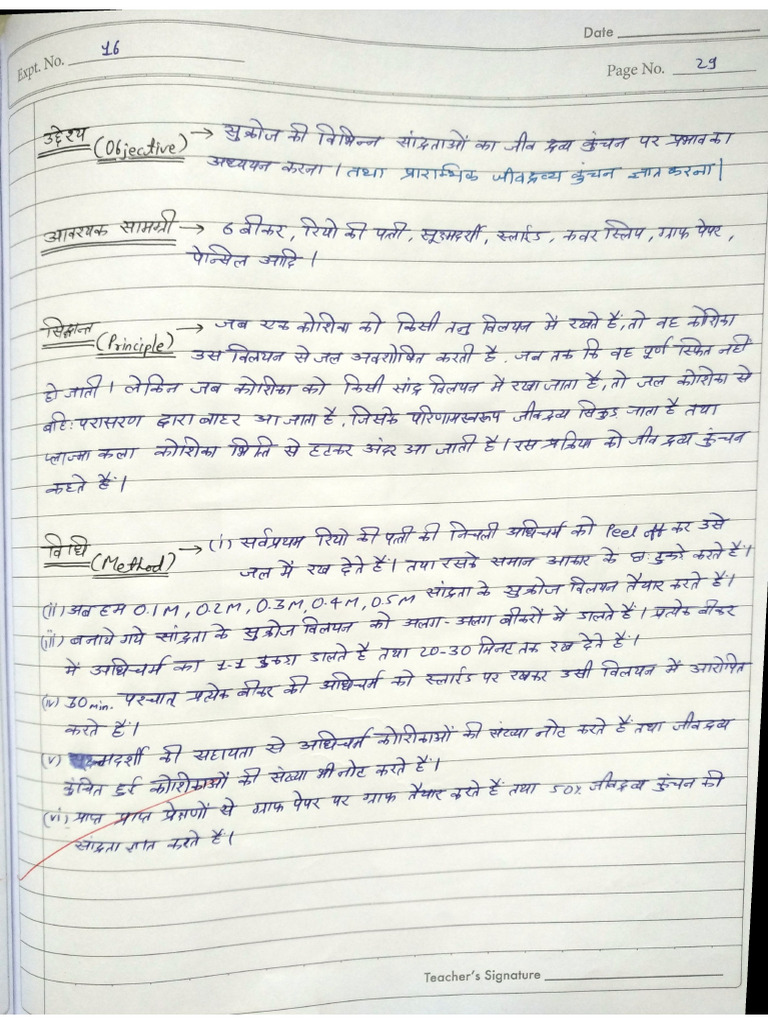 Date
Expt. No. 16
Page No. 29
उद्देश्य (Objective) → सुक्रोज की विभिन्न सांद्रताओं का जीव द्रव्य कुंचन पर प्रभाव का
अध्ययन करना। तथा प्रारम्भिक जीवद्रव्य कुंचन ज्ञात करना।
आवश्यक सामग्री → 6 बीकर, रियो की पत्ती, सूक्ष्मदर्शी, स्लाईड, कवर स्लिप, ग्राफ पेपर,
पेन्सिल आदि।
सिद्धान्त (Principle) → जब एक कोशिका को किसी तनु विलयन में रखते हैं, तो वह कोशिका
उस विलयन से जल अवशोषित करती है. जब तक कि वह पूर्ण स्फित नहीं
हो जाती। लेकिन जब कोशिका को किसी सांद्र विलयन में रखा जाता है, तो जल कोशिका से
बहि: परासरण द्वारा बाहर आ जाता है, जिसके परिणामस्वरूप जीवद्रव्य सिकुड जाता है तथा
प्लाज्मा कला कोशिका भित्ति से हटकर अंदर आ जाती है। इस प्रक्रिया को जीव द्रव्य कुंचन
कहते हैं।
विधि (Method) → (i) सर्वप्रथम रियो की पत्ती की निचली अधिचर्म को Peel off कर उसे
जल में रख देते हैं। तथा इसके समान आकार के छ: टुकडे करते है।
(ii) अब हम 0.1M, 0.2M, 0.3M, 0.4M, 0.5M सांद्रता के सुक्रोज विलयन तैयार करते है।
(iii) बनाये गये सांद्रता के सुक्रोज विलयन को अलग-अलग बीकरों में डालते हैं। प्रत्येक बीकर
में अधिचर्म का 1-1 टुकडा डालते है तथा 20-30 मिनट तक रख देते हैं।
(iv) 30 min. पश्चात् प्रत्येक बीकर की अधिचर्म को स्लाईड पर रखकर उसी विलयन में आरोपित
करते हैं।
(v) दर्शी की सहायता से अधिचर्म कोशिकाओं की संख्या नोट करते हैं तथा जीवद्रव्य
कुंचित हुई कोशिकाओं की संख्या भी नोट करते हैं।
(vi) प्राप्त प्राप्त प्रेक्षणों से ग्राफ पेपर पर ग्राफ तैयार करते हैं तथा 50% जीवद्रव्य कुंचन की
सांद्रता ज्ञात करते हैं।
Teacher's Signature